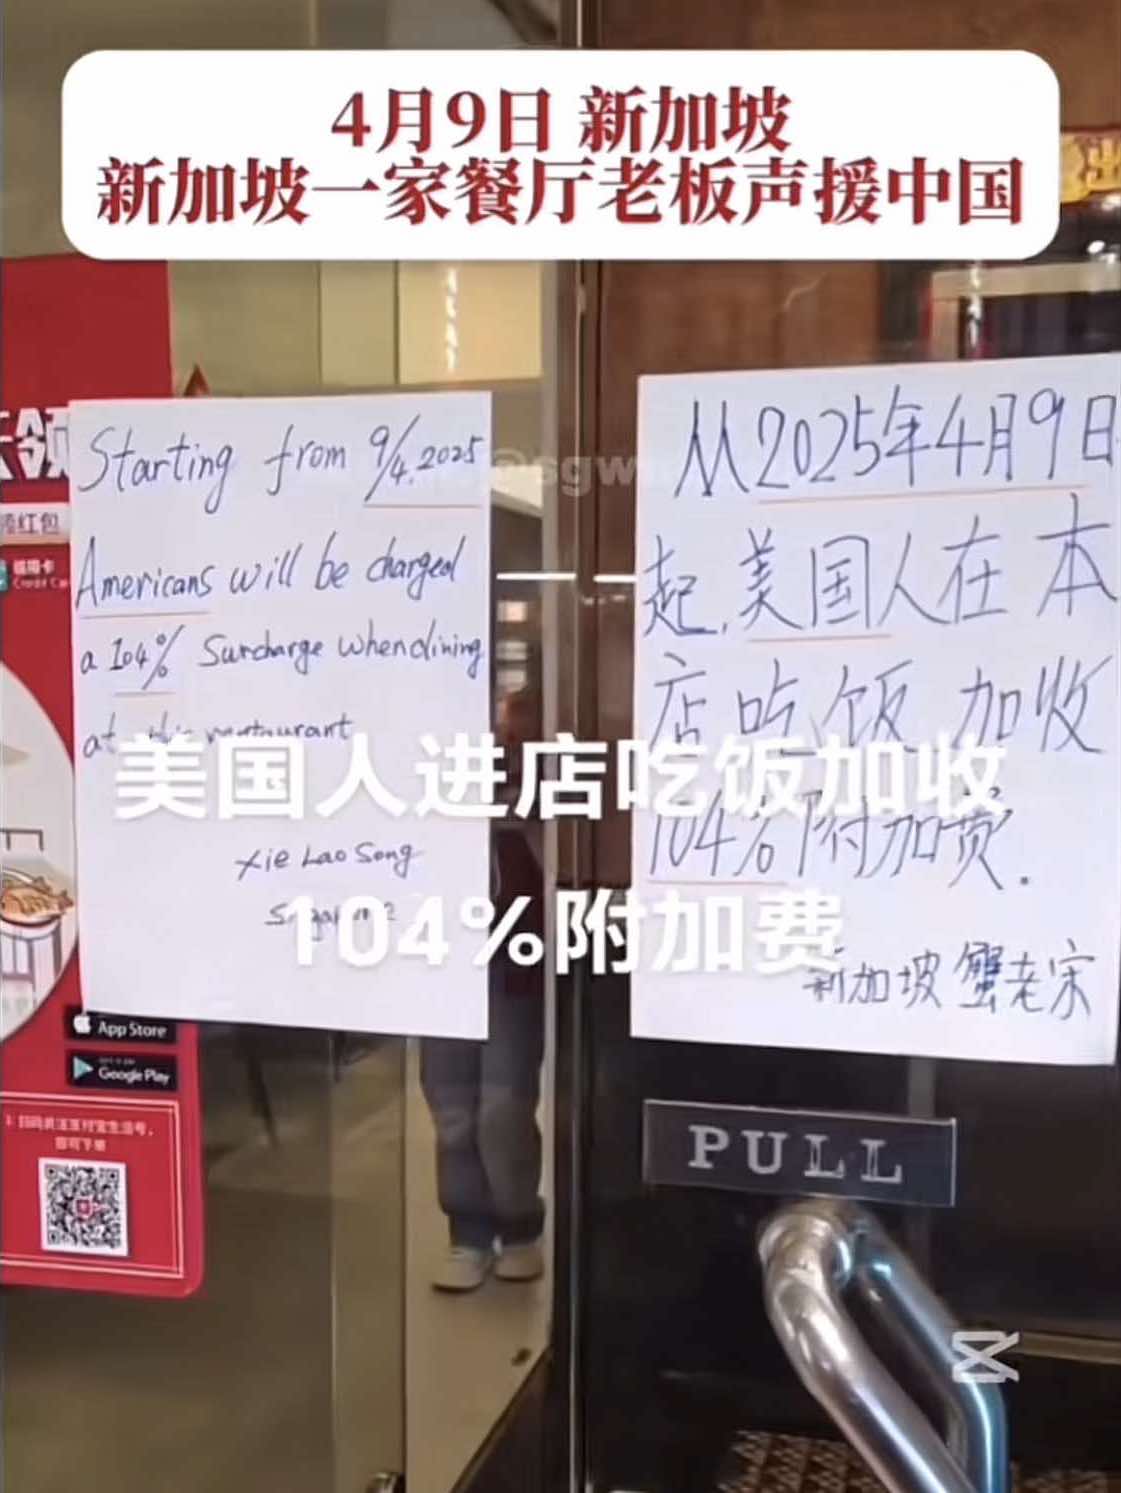 4月9日 新加坡
新加坡一家餐厅老板声援中国
Starting from 9/4.2025
Americans will be charged
a 104% Surcharge when dining
at this restaurant
Xie Lao Song
Singapore
从2025年4月9日
起,美国人在本
店吃饭加收
104%附加费.
新加坡 蟹老宋
美国人进店吃饭加收
104%附加费
@sgw
领
领红包
信用卡
App Store
Google Play
PULL